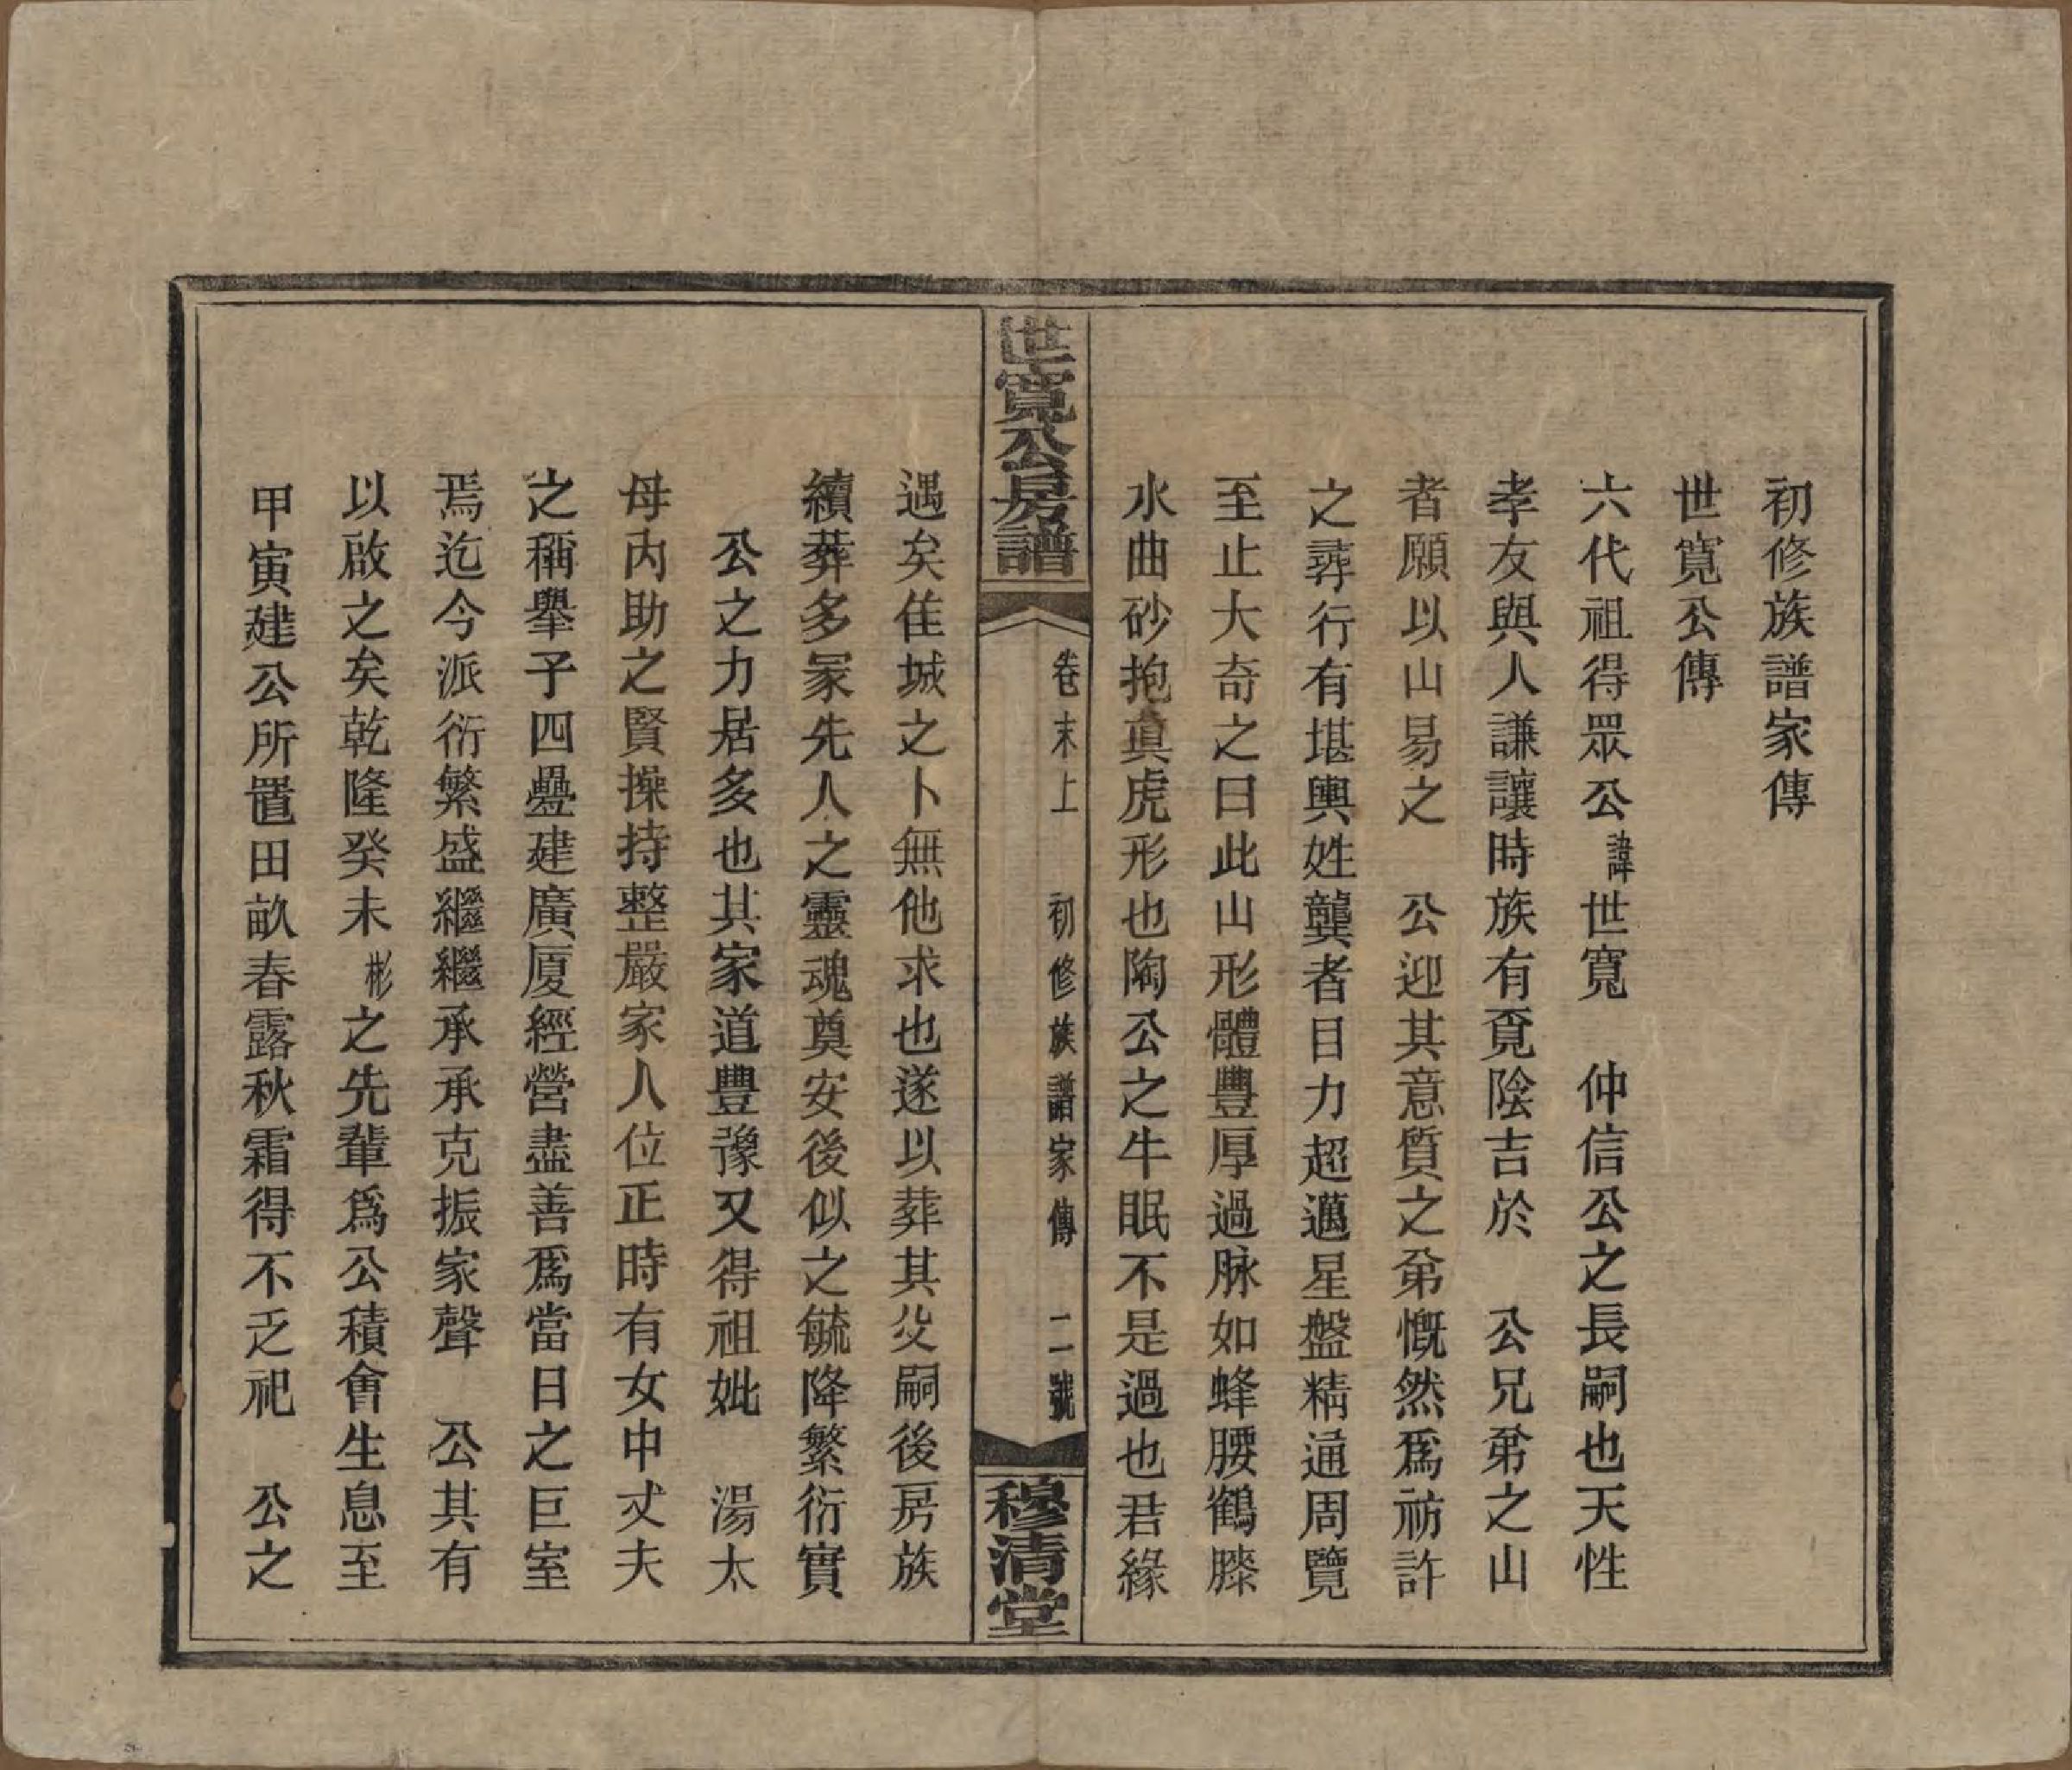 初修族譜家傳
世寬公傳
六代祖得眾公諱世寬　仲信公之長嗣也天性
孝友與人謙讓時族有覓陰吉於　公兄弟之山
者願以山易之　公迎其意質之弟慨然爲祊許
之尋行有堪輿姓龔者目力超邁星盤精通周覽
至止大奇之曰此山形體豐厚過脉如蜂腰鶴膝
水曲砂抱真虎形也陶公之牛眠不是過也君緣
世寬公房譜
卷末上　初修族譜家傳　二一號
穆清堂
遇矣佳城之卜無他求也遂以葬其父嗣後房族
續葬多冢先人之靈魂奠安後似之毓降繁衍實
公之力居多也其家道豐豫又得祖妣　湯太
母內助之賢操持整嚴家人位正時有女中丈夫
之稱舉子四疊建廣厦經營盡善爲當日之巨室
焉迄今派衍繁盛繼繼承承克振家聲　公其有
以啟之矣乾隆癸未彬之先輩爲公積會生息至
甲寅建公所置田畝春露秋霜得不乏祀　公之